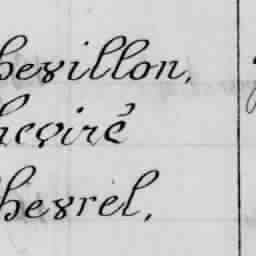 hevillon,
heviré
hevrel,